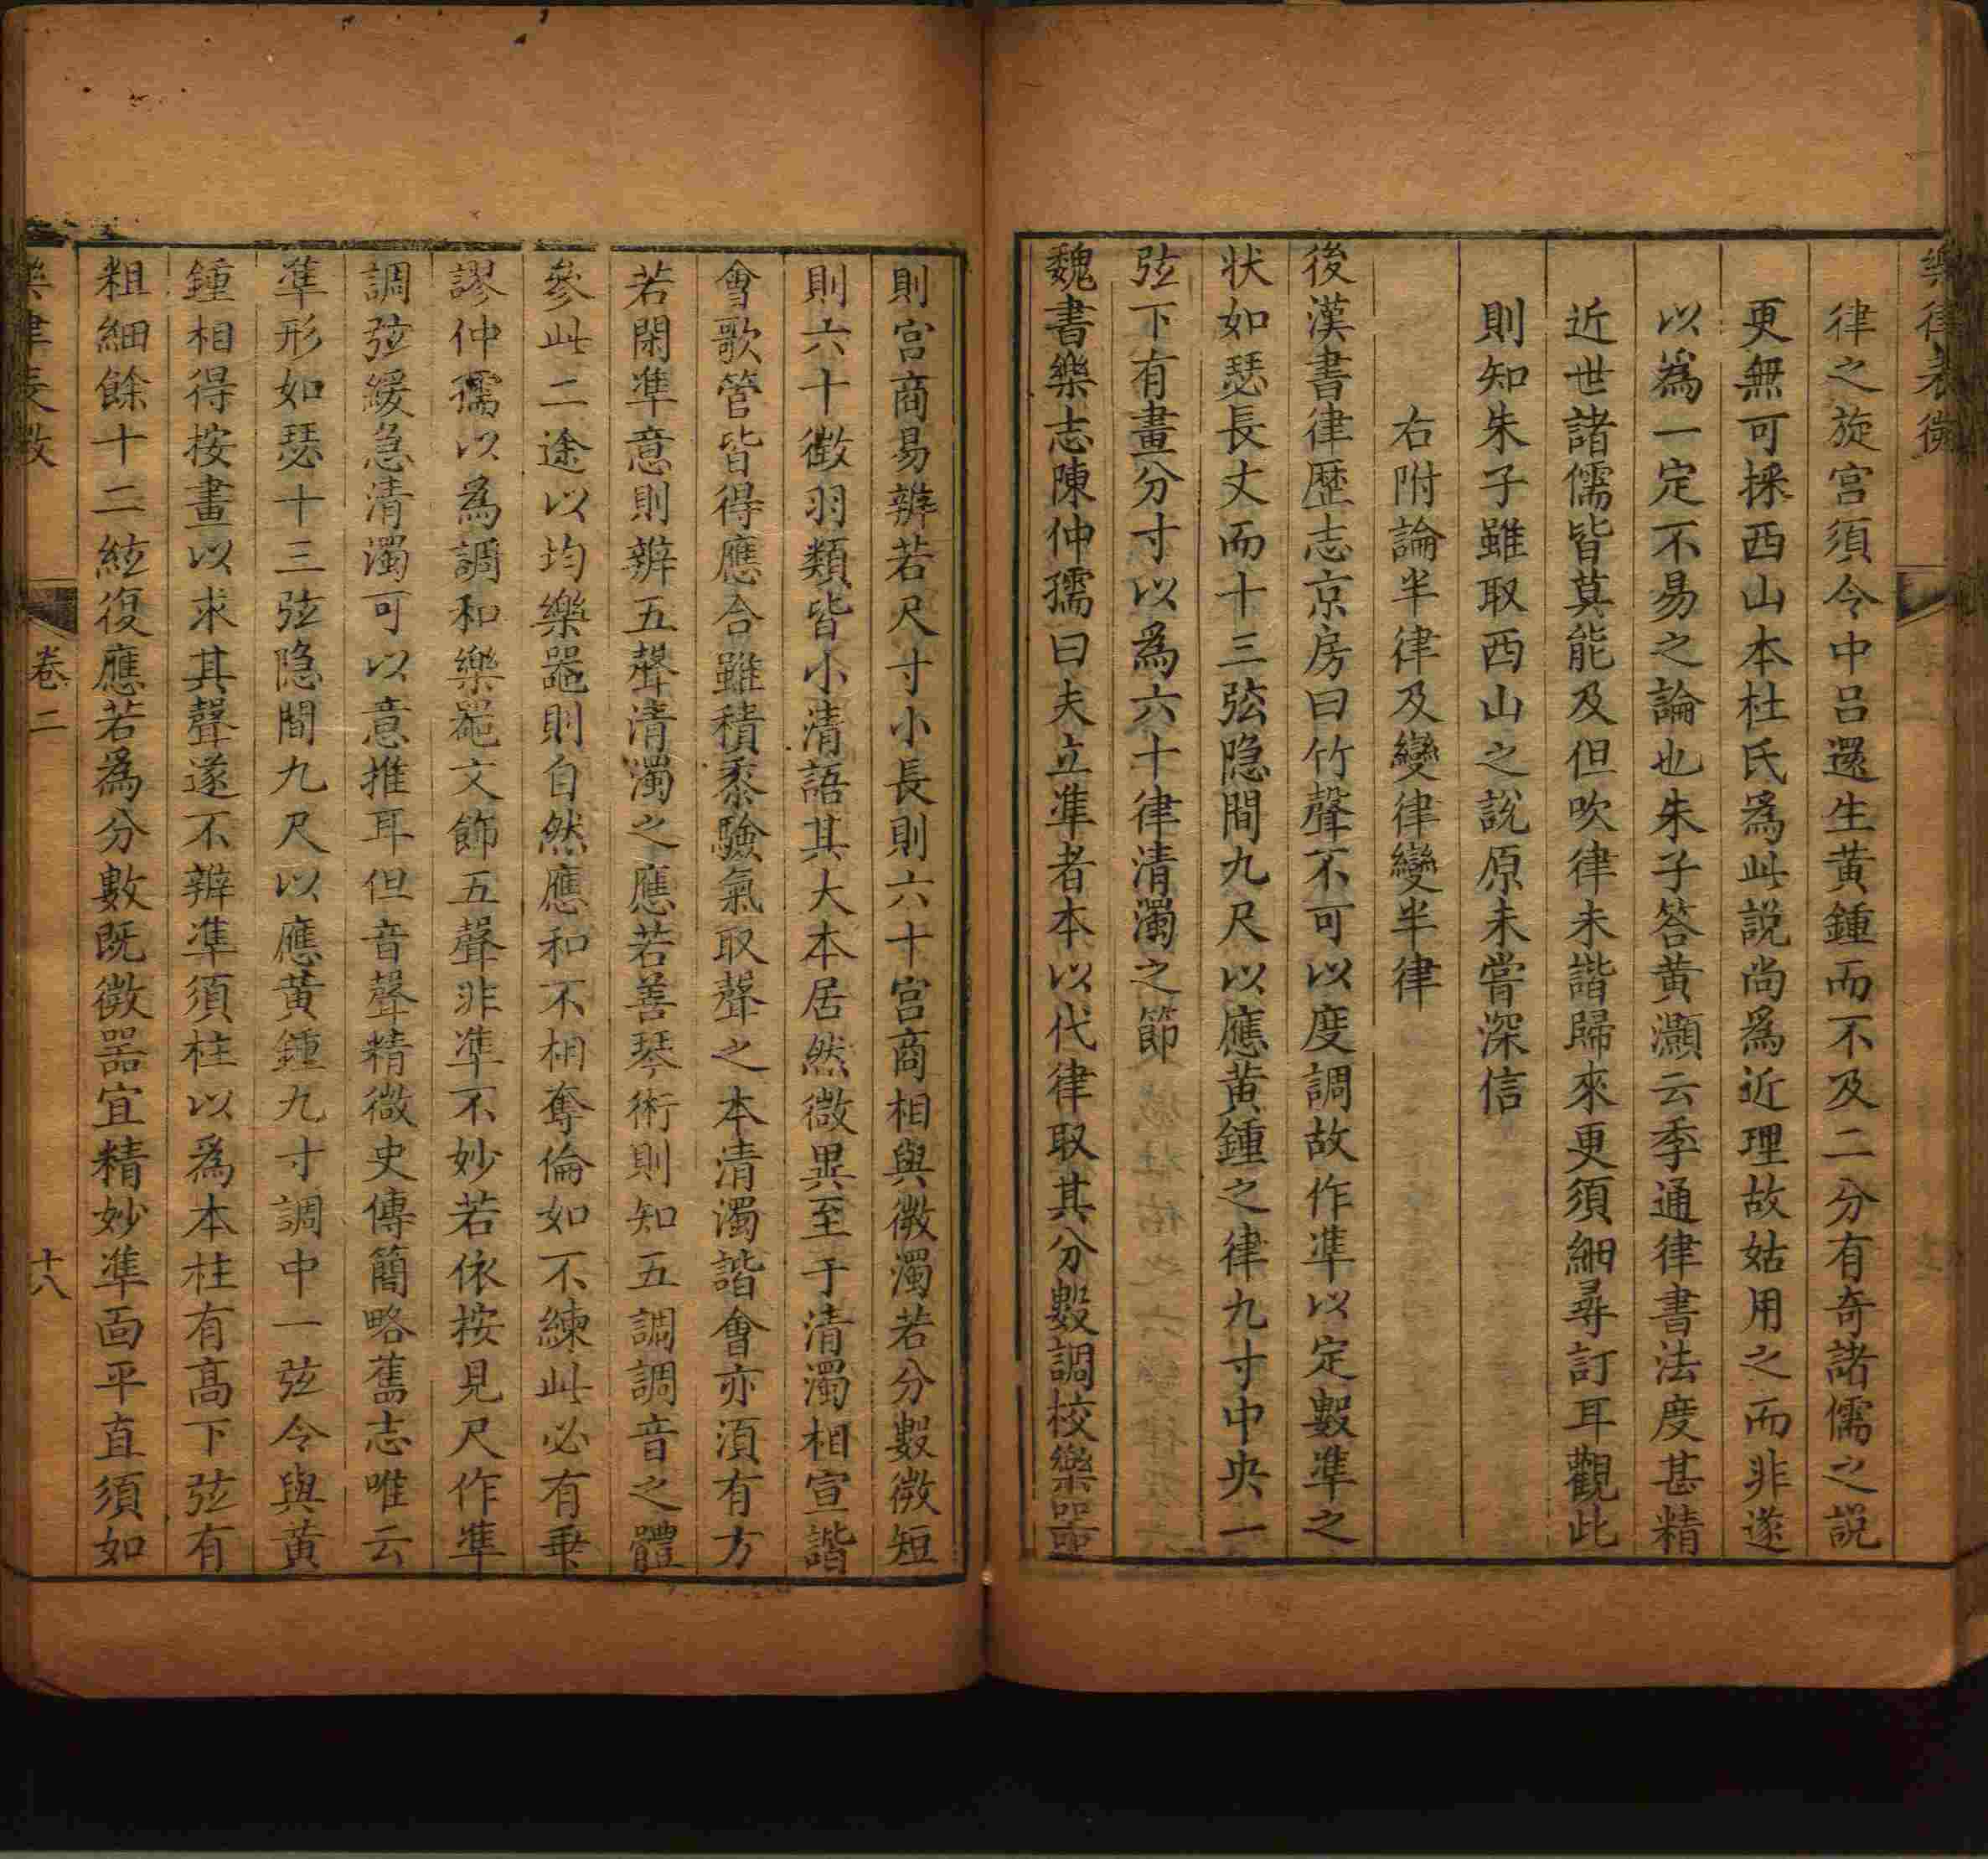 樂律表微
律之旋宮須令中呂還生黃鍾而不及二分有奇諸儒之說
更無可採西山本杜氏爲此說尚爲近理故姑用之而非遂
以爲一定不易之論也朱子答黃灝云季通律書法度甚精
近世諸儒皆莫能及但吹律未諧歸來更須細尋訂耳觀此
則知朱子雖取西山之說原未嘗深信
右附論半律及變律變半律
後漢書律歷志京房曰竹聲不可以度調故作準以定數準之
状如瑟長丈而十三弦隐間九尺以應黃鍾之律九寸中央一
弦下有畫分寸以爲六十律清濁之節
魏書樂志陳仲孺曰夫立準者本以代律取其分數調校樂器
則宮商易辨若尺寸小長則六十宮商相與微濁若分數微短
則六十徵羽類皆小清語其大本居然微異至于清濁相宣諧
會歌管皆得應合雖積黍驗氣取聲之本清濁諧會亦湏有方
若閑準意則辨五聲清濁之應若善琴術則知五調調音之體
參此二途以均樂噐則自然應和不相奪倫如不練此必有乖
謬仲孺以爲調和樂噐文飾五聲非準不妙若依按見尺作準
調弦緩急清濁可以意推耳但音聲精微史傳簡略舊志唯云
準形如瑟十三弦隐間九尺以應黃鍾九寸調中一弦令與黃
鍾相得按畫以求其聲遂不辨準須柱以爲本柱有高下弦有
粗細餘十二絃復應若爲分數既微器宜精妙準面平直須如
樂律表微
卷二
十八